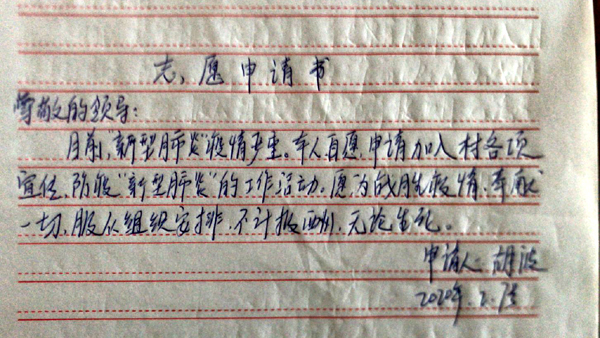 志愿申请书
尊敬的领导:
目前,"新型肺炎"疫情严重。本人自愿申请加入村各项
宣传、防疫"新型肺炎"的工作活动。愿为战胜疫情,奉献
一切,服从组织安排,不计报酬,无论生死。
申请人:胡波
2020年.2.